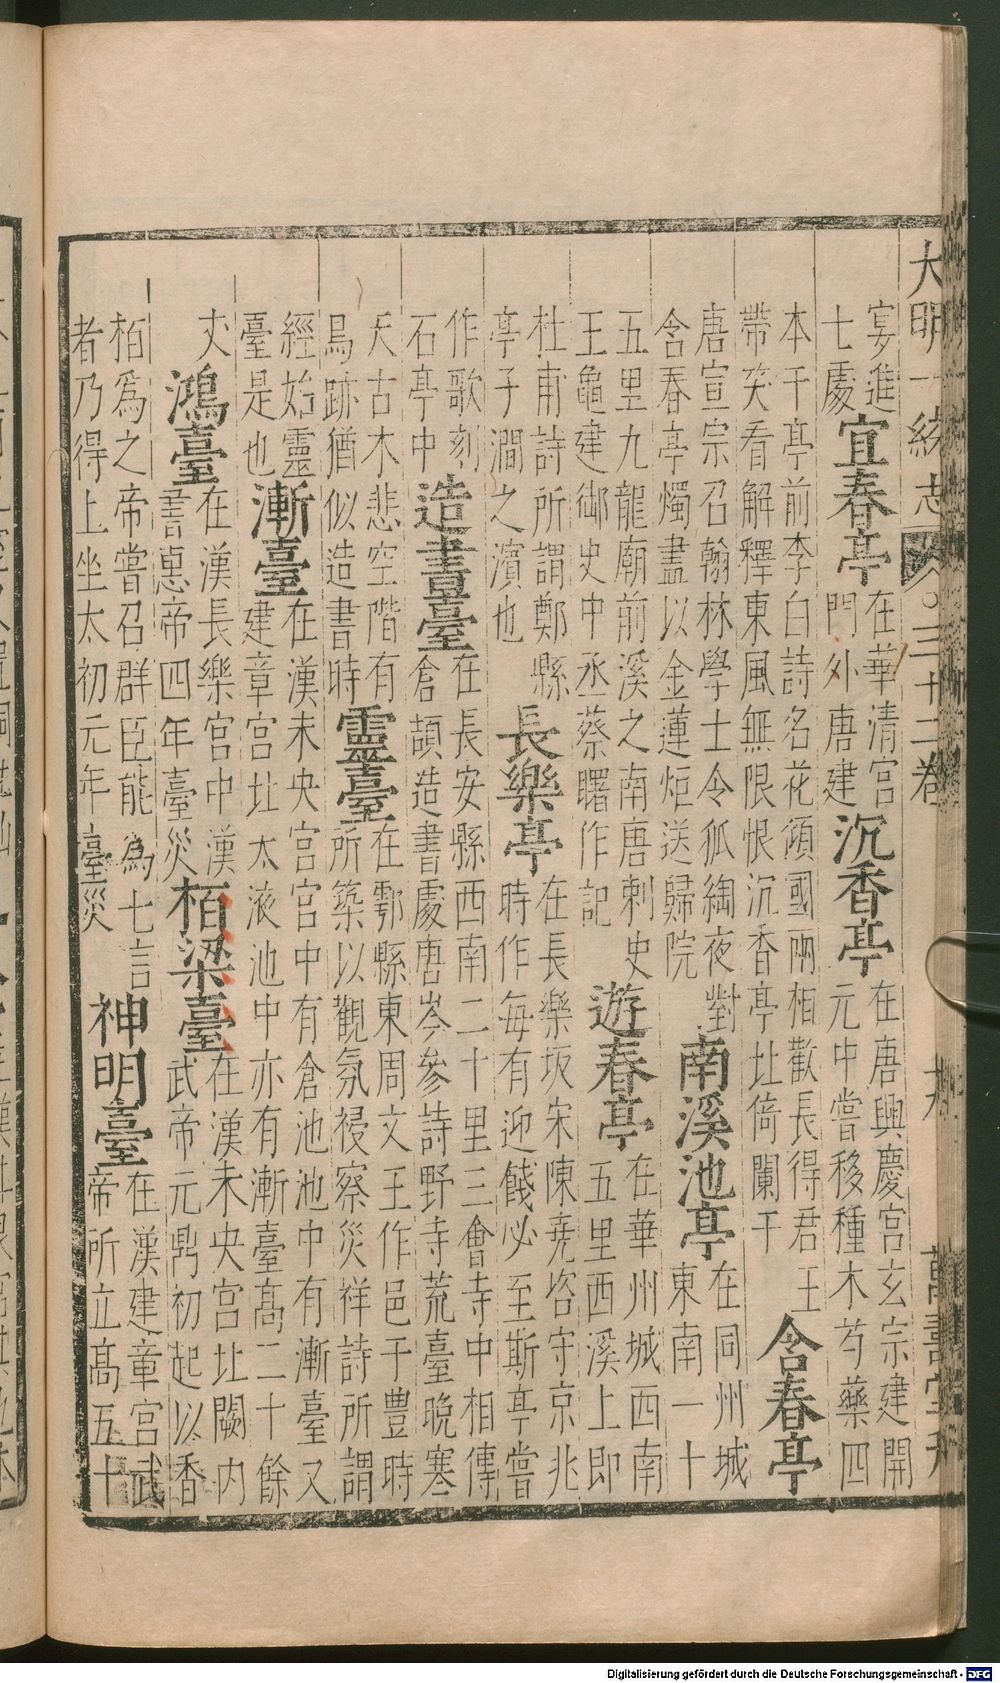 大明一統志 三十二卷 九 萬壽堂刋
宴進七處宜春亭在華清宮門外唐建沉香亭在唐興慶宮玄宗建開元中嘗移種木芍藥四
本于亭前李白詩名花傾國兩相歡長得君王帶笑看解釋東風無限恨沉香亭址倚闌干含春亭
唐宣宗召翰林學士令狐綯夜對含春亭燭盡以金蓮炬送歸院南溪池亭在同州城東南一十
五里九龍廟前溪之南唐刺史王龜建御史中丞蔡曙作記遊春亭在華州城西南五里西溪上即
杜甫詩所謂鄭縣亭子澗之濱也長樂亭在長樂坂宋陳堯咨守京兆時作每有迎餞必至斯亭嘗
作歌刻石亭中造書臺在長安縣西南二十里三會寺中相傳倉頡造書處唐岑參詩野寺荒臺晚寒
天古木悲空階有鳥跡猶似造書時靈臺在鄠縣東周文王作邑于豊時所築以觀氛祲察災祥詩所謂
經始靈臺是也漸臺在漢未央宮宮中有倉池池中有漸臺又建章宮址太液池中亦有漸臺高二十餘
丈鴻臺在漢長樂宮中漢書惠帝四年臺災栢梁臺在漢未央宮址闕内武帝元鼎初起以香
栢為之帝嘗召群臣能為七言者乃得上坐太初元年臺災神明臺在漢建章宮武帝所立高五十
Digitalisierung gefördert durch die Deutsche Forschungsgemeinschaft - DFG